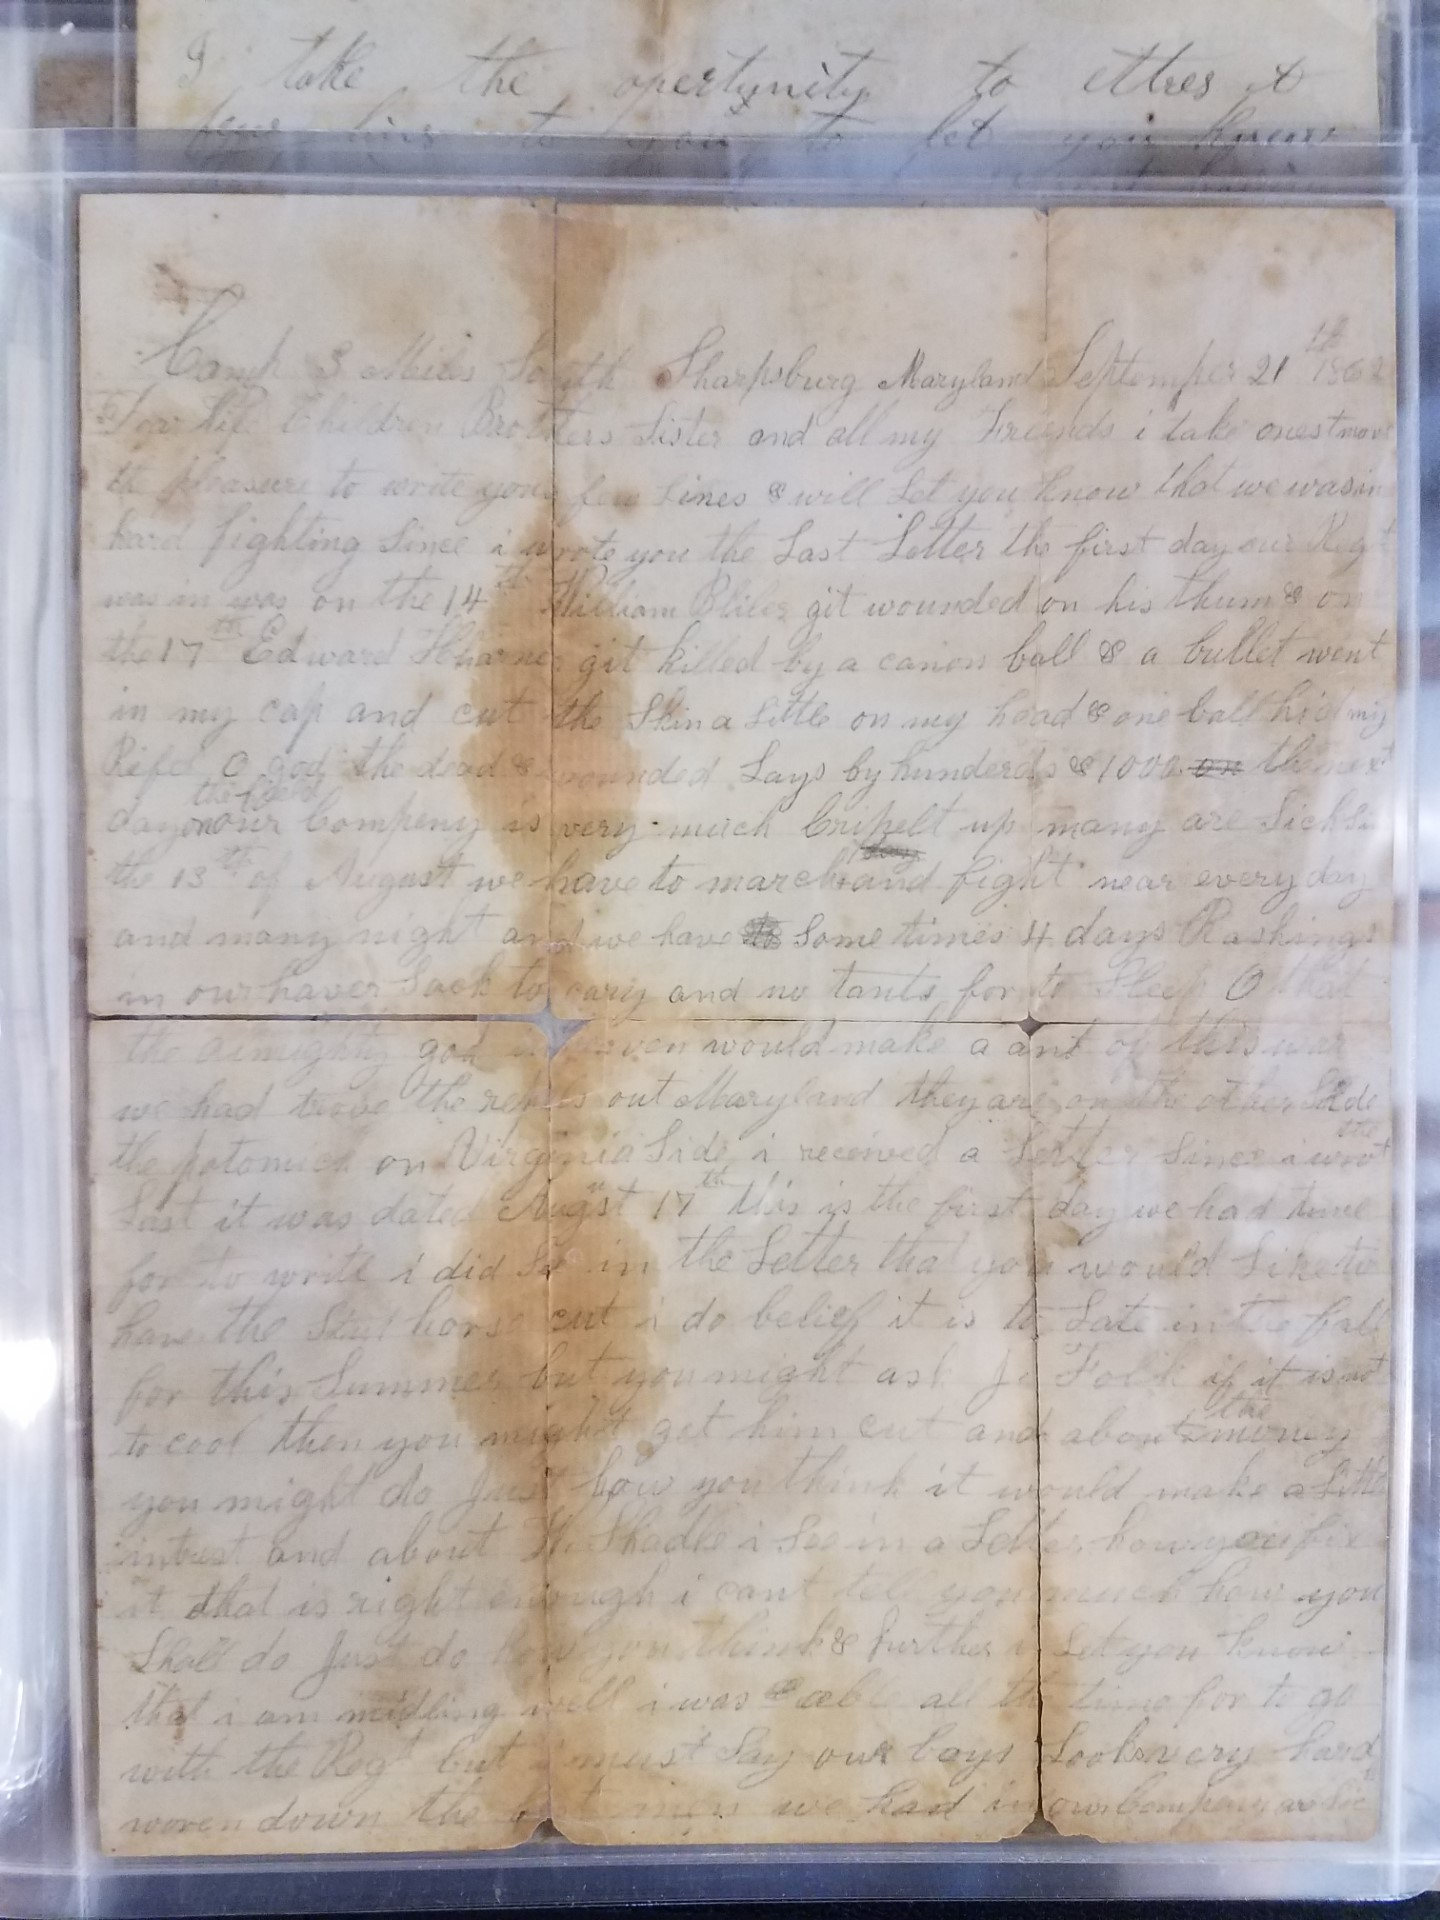 I take the opertunity to
few lins to you to let you know
Camp 3 Miles South Sharpsburg Maryland Septemper 21th 1862
Dear Wife Children Brothers Sister and all my Friends i take onest more
the pleasure to write you few Lines & will Let you know that we was in
hard fighting Since i wrote you the Last Letter the first day our Regt
was in was on the 14th William git wounded on his thum & on
the 17th Edward git killed by a canon ball & a bullet went
in my cap and cut the Skin a Little on my head & one ball hid my
Rifel O god the dead & wounded Lays by hunderds & 1000 on the next
day on the field our Compeny is very much Cripelt up many are Sick
the 13th of August we have to march and fight near every day
and many night and we have to Some times 4 days Rashings
in our haver Sack to cary and no tants for to Sleep O that
the almighty god in heven would make a ant of this war
we had trove the repels out Maryland they are on the other Side
the potomick on Virginia Side i received a Letter Since i wrot the
Last it was dated Augst 17th this is the first day we had time
for to write i did See in the Letter that you would Like to
have the horse cut i do belief it is to Late in the fall
for this Summer but you might ask if it is not
to cool then you might get him cut and about the money
you might do Just how you think it would make a Little
intrest and about i See in a Letter how you fix
it that is right enough i cant tell you much how you
Shall do Just do how you think & further i Let you know
that i am midling well i was able all the time for to go
with the Regt but i must Say our boys Looks very hard
woren down the best men we had in our Compeny are